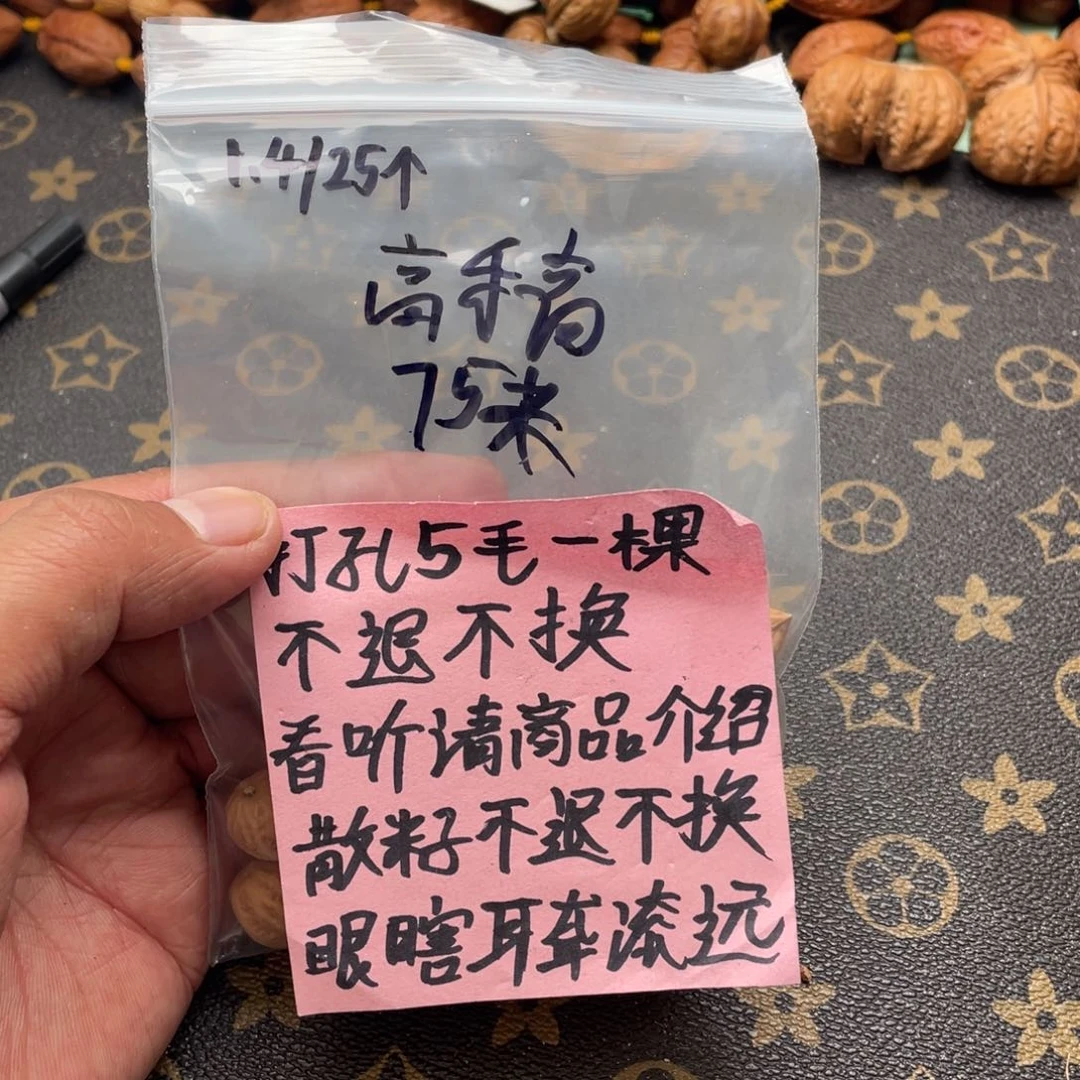 1.4/25个
高手育
75米
打孔5毛一棵
不退不换
看听请商品介绍
散籽不退不换
眼瞎耳牵滚远